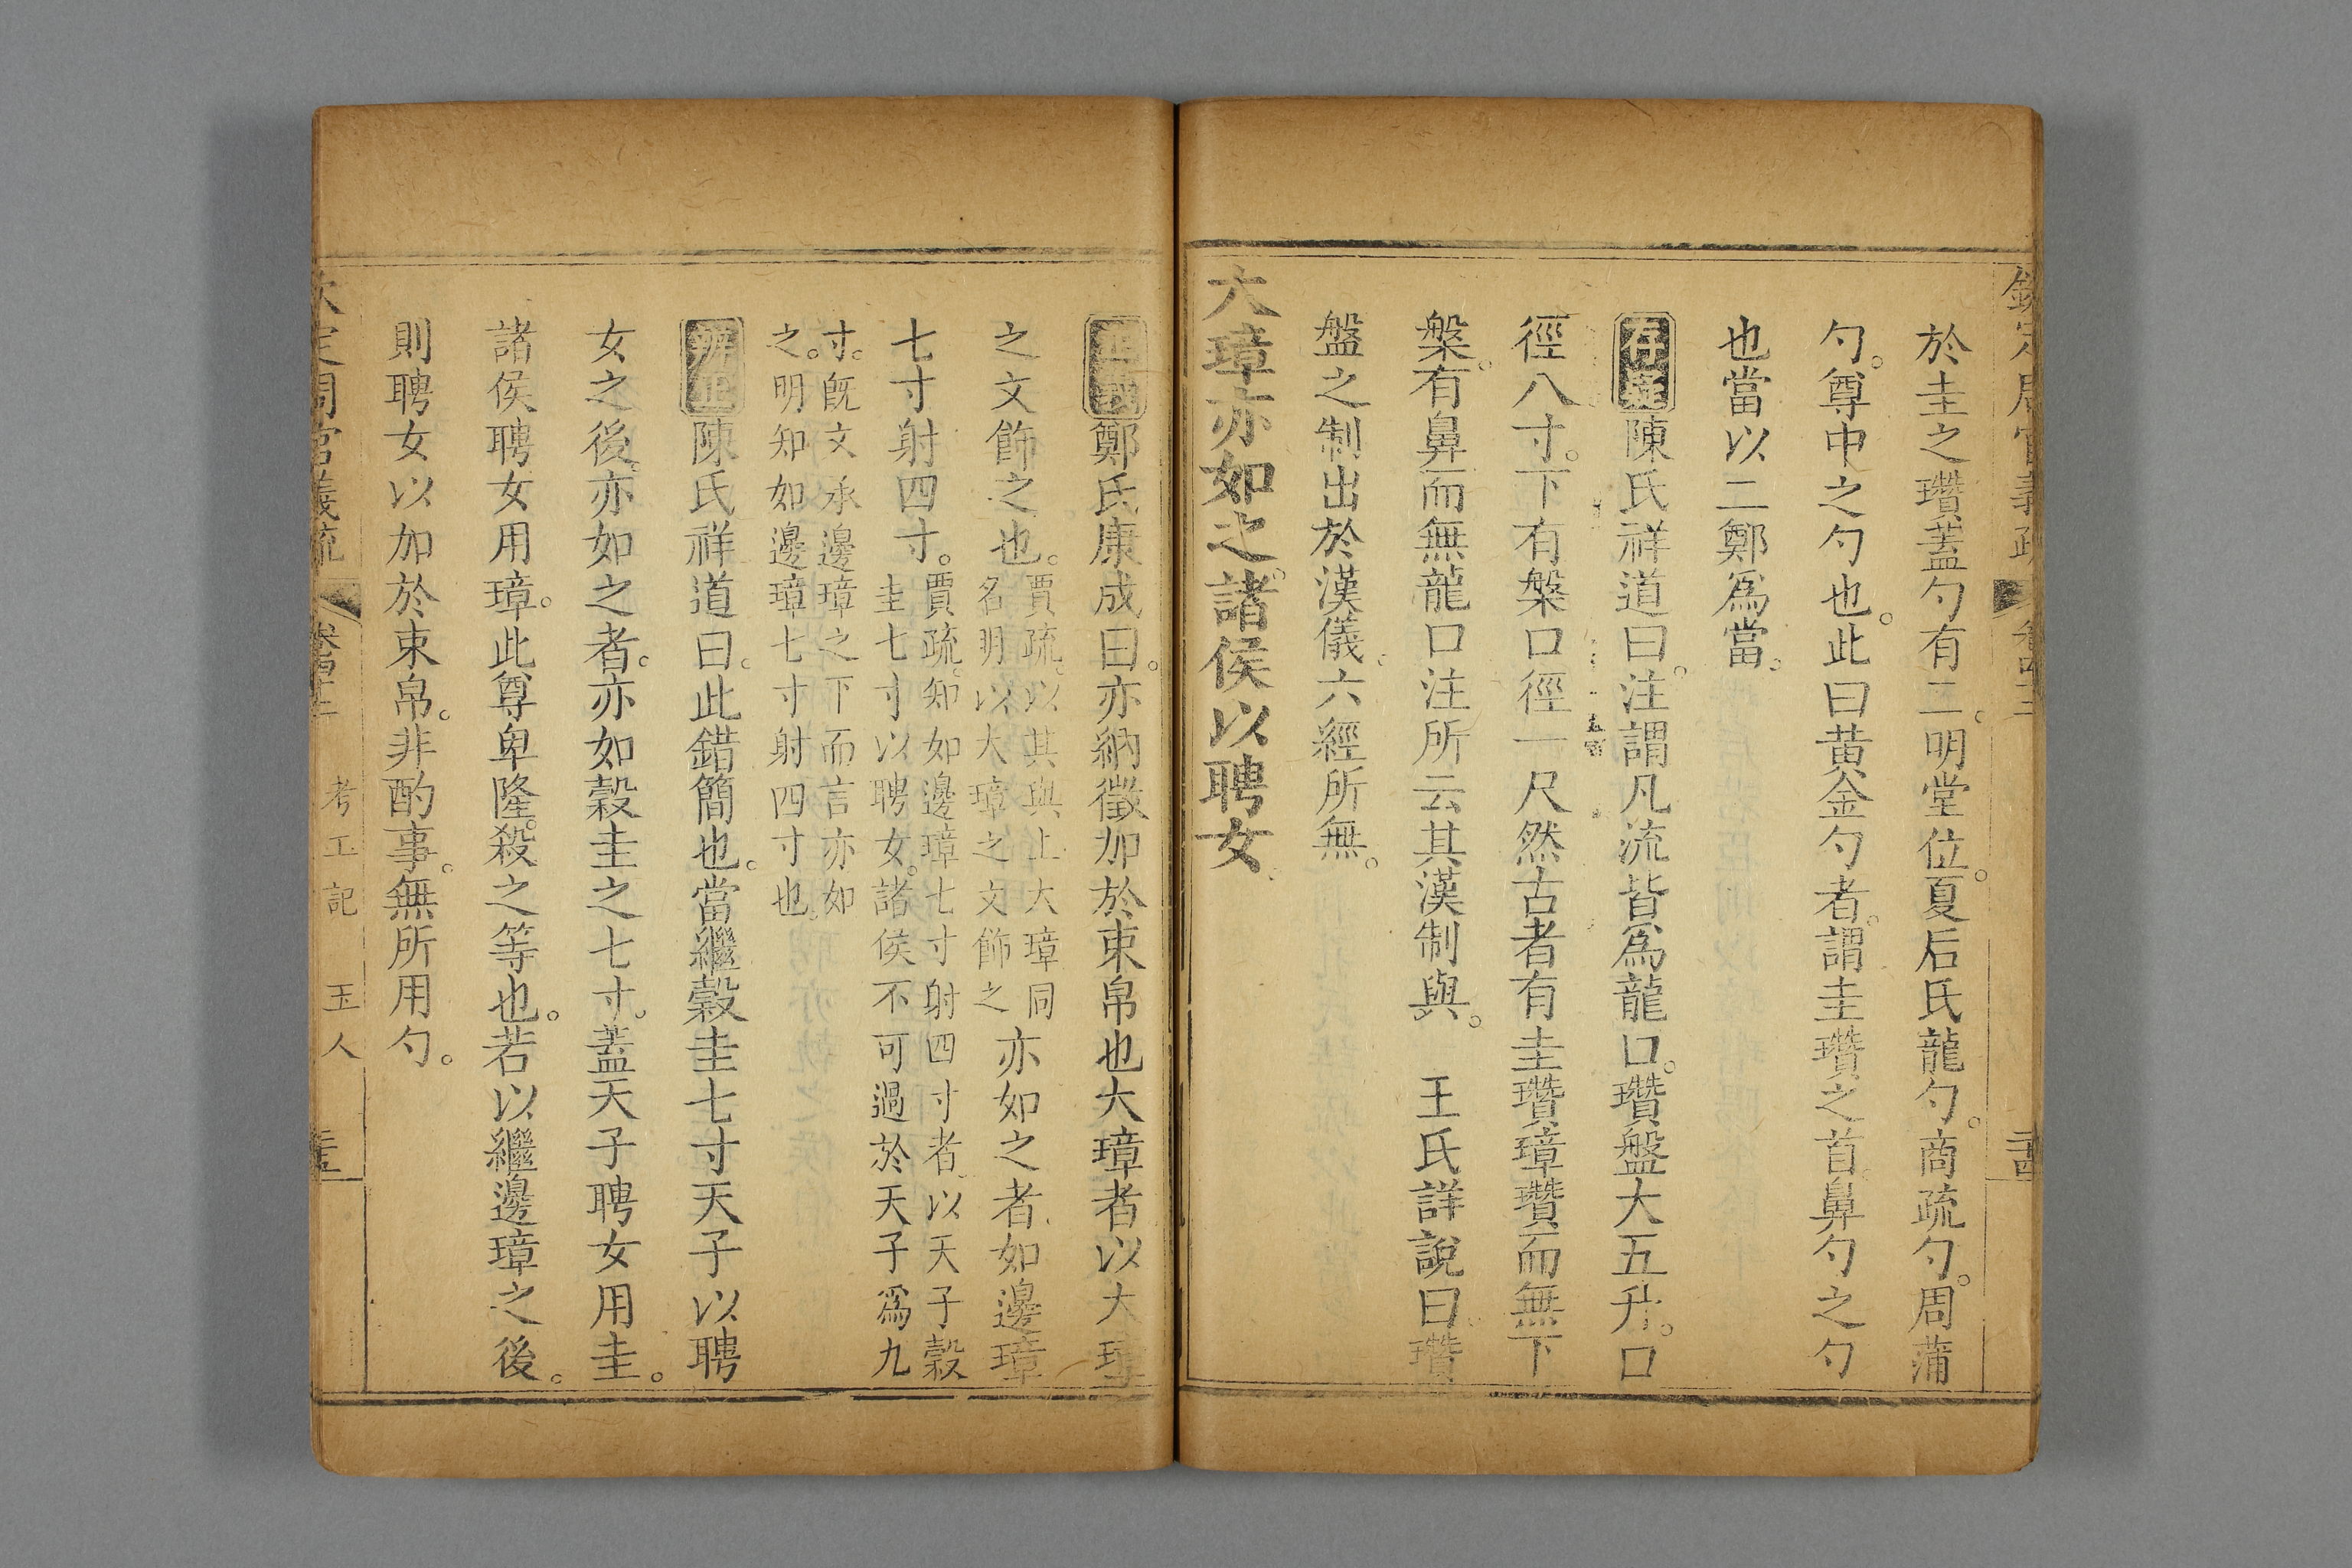 於圭之瓚蓋勺有二。明堂位。夏后氏龍勺。商疏勺。周蒲
勺。尊中之勺也。此曰黄金勺者。謂圭瓚之首。鼻勺之勺
也當以二鄭爲當。
存疑陳氏祥道曰。注謂凡流皆爲龍口。瓚盤大五升。口
徑八寸。下有槃口徑一尺然古者有圭瓚璋瓚而無下
槃。有鼻而無龍口注所云其漢制與。　王氏詳說曰。瓚
盤之制出於漢儀。六經所無。
大璋亦如之。諸侯以聘女
正義鄭氏康成曰。亦納徵加於束帛也大璋者以大璋
之文飾之也。
賈疏。以其與上大璋同
名明以大璋之文飾之
亦如之者如邊璋
七寸射四寸。
賈疏。知如邊璋七寸射四寸者。以天子穀
圭七寸以聘女。諸侯不可過於天子爲九
寸。旣文承邊璋之下而言亦如
之。明知如邊璋七寸射四寸也。
辨正陳氏祥道曰。此錯簡也。當繼穀圭七寸天子以聘
女之後。亦如之者。亦如穀圭之七寸。蓋天子聘女用圭。
諸侯聘女用璋。此尊卑隆殺之等也。若以繼邊璋之後。
則聘女以加於束帛。非酌事。無所用勺。
欽定周官義疏
考工記　玉人